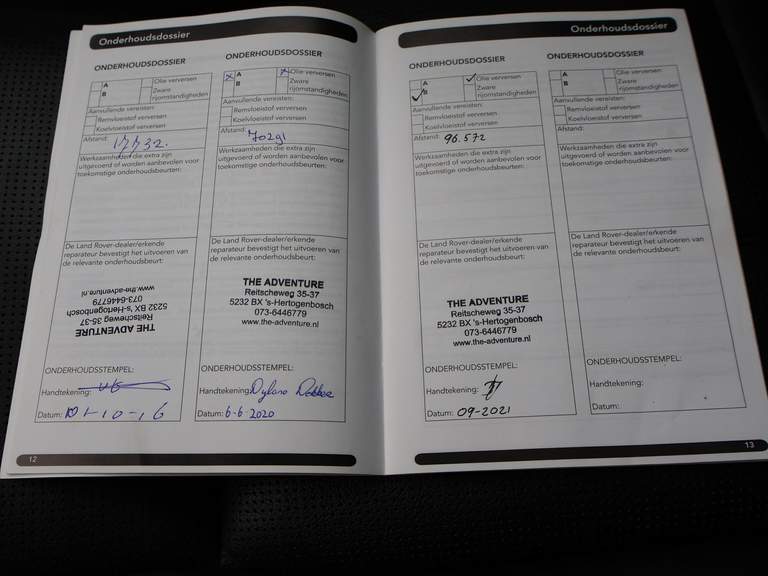 Onderhoudsdossier
ONDERHOUDSDOSSIER
A
B
Olie verversen
Zware
rijomstandigheden
Aanvullende vereisten:
Remvloeistof verversen
Koelvloeistof verversen
Afstand:
Werkzaamheden die extra zijn
uitgevoerd of worden aanbevolen voor
toekomstige onderhoudsbeurten:
De Land Rover-dealer/erkende
reparateur bevestigt het uitvoeren van
de relevante onderhoudsbeurt:
THE ADVENTURE
Reitscheweg 35-37
5232 BX 's-Hertogenbosch
073-6446779
www.the-adventure.nl
ONDERHOUDSSTEMPEL:
Handtekening:
Datum: 01-10-16
12
ONDERHOUDSDOSSIER
A
B
Olie verversen
Zware
rijomstandigheden
Aanvullende vereisten:
Remvloeistof verversen
Koelvloeistof verversen
Afstand: 70291
Werkzaamheden die extra zijn
uitgevoerd of worden aanbevolen voor
toekomstige onderhoudsbeurten:
De Land Rover-dealer/erkende
reparateur bevestigt het uitvoeren van
de relevante onderhoudsbeurt:
THE ADVENTURE
Reitscheweg 35-37
5232 BX 's-Hertogenbosch
073-6446779
www.the-adventure.nl
ONDERHOUDSSTEMPEL:
Handtekening:
Datum: 6-6-2020
Onderhoudsdossier
ONDERHOUDSDOSSIER
A
B
Olie verversen
Zware
rijomstandigheden
Aanvullende vereisten:
Remvloeistof verversen
Koelvloeistof verversen
Afstand: 96.572
Werkzaamheden die extra zijn
uitgevoerd of worden aanbevolen voor
toekomstige onderhoudsbeurten:
De Land Rover-dealer/erkende
reparateur bevestigt het uitvoeren van
de relevante onderhoudsbeurt:
THE ADVENTURE
Reitscheweg 35-37
5232 BX 's-Hertogenbosch
073-6446779
www.the-adventure.nl
ONDERHOUDSSTEMPEL:
Handtekening:
Datum: 09-2021
ONDERHOUDSDOSSIER
A
B
Olie verversen
Zware
rijomstandigheden
Aanvullende vereisten:
Remvloeistof verversen
Koelvloeistof verversen
Afstand:
Werkzaamheden die extra zijn
uitgevoerd of worden aanbevolen voor
toekomstige onderhoudsbeurten:
De Land Rover-dealer/erkende
reparateur bevestigt het uitvoeren van
de relevante onderhoudsbeurt:
ONDERHOUDSSTEMPEL:
Handtekening:
Datum:
13